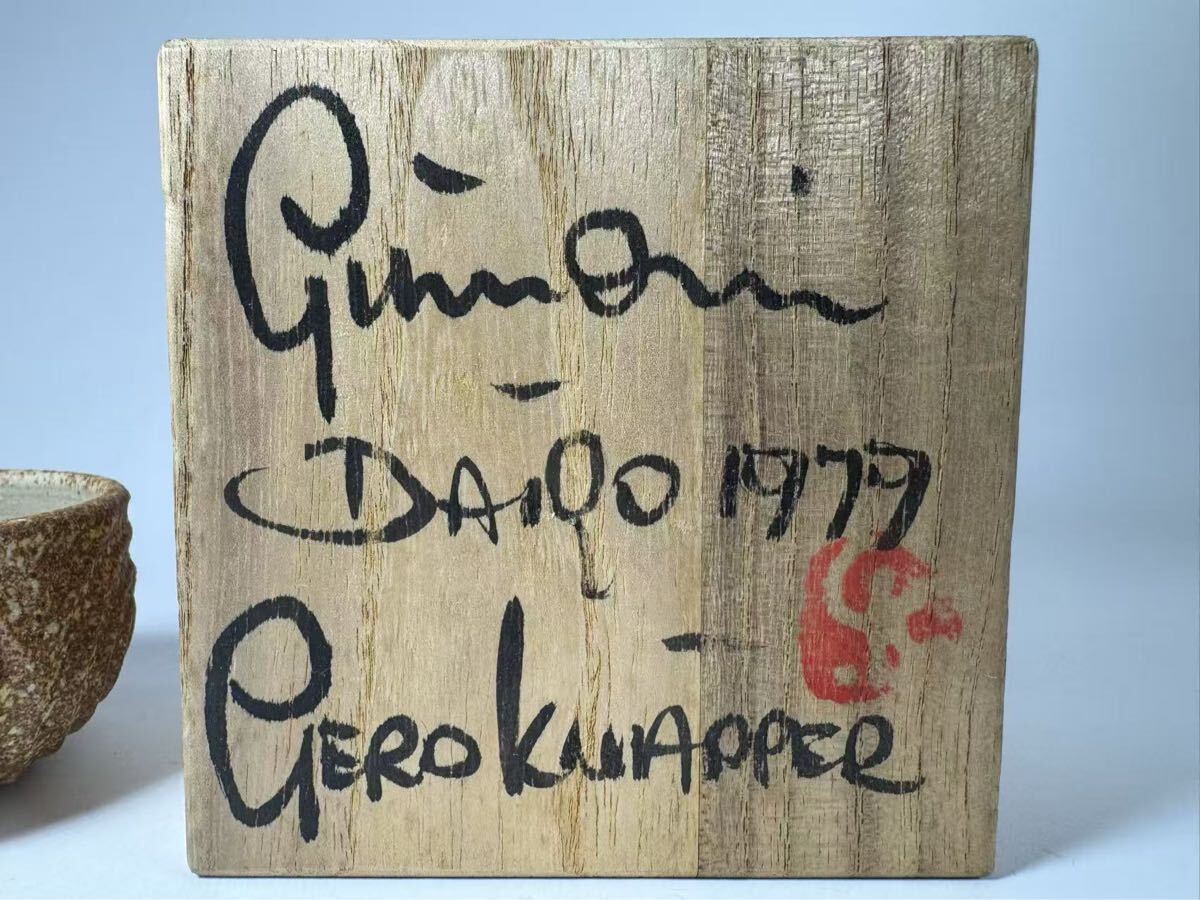 Guinomi
DAIGO 1979
GERD KNÄPPER